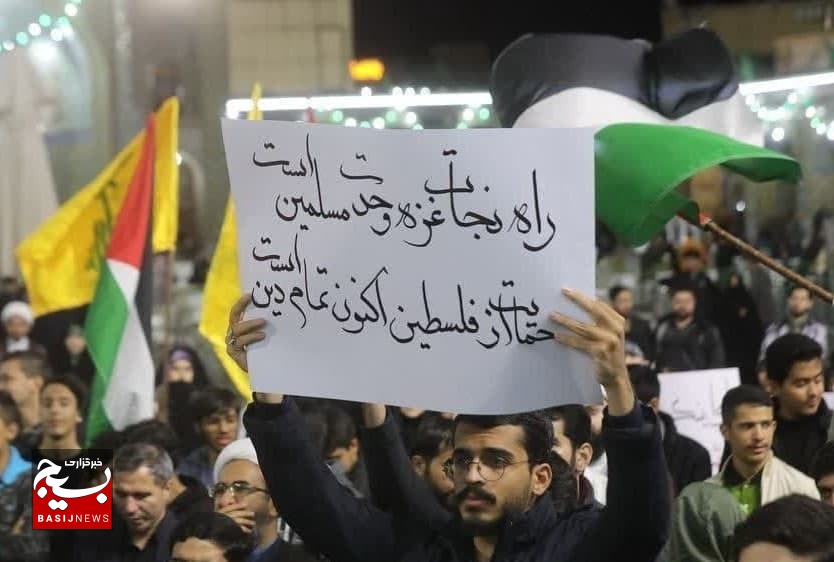 راه نجات غزه وحدت مسلمین است
حمایت از فلسطین اکنون تمام دین است
خبرگزاری
بسیج
BASIJNEWS